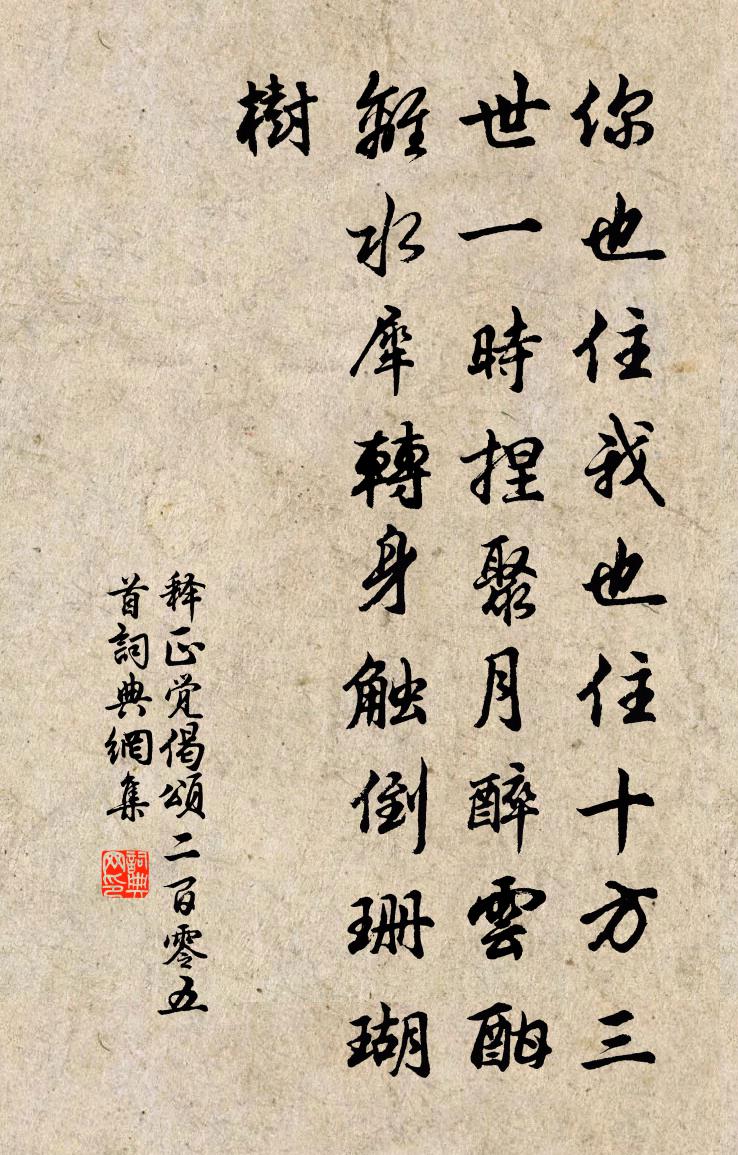 你也住我也住十方三
世一時捏聚月醉雲酣
離水犀轉身触倒珊瑚
樹
释正觉偈頌二百零五
首詞典網集
詞典网印